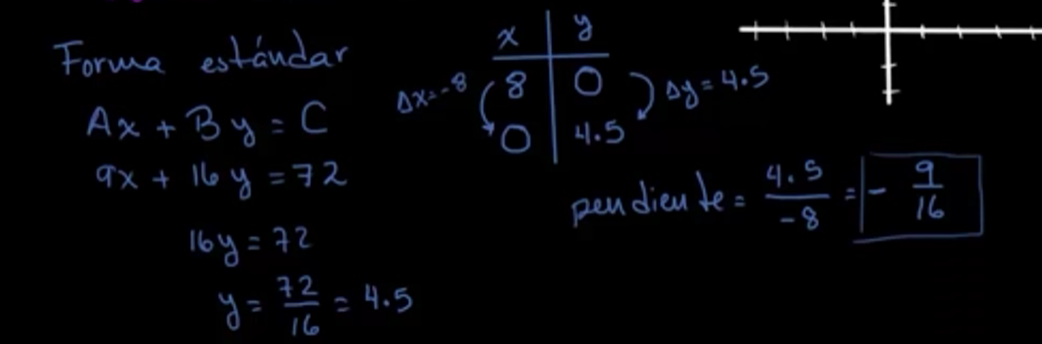 Forma estándar
Ax + By = C
9x + 16y = 72
16y = 72
y = 72/16 = 4.5
x | y
Δx=-8 8 | 0 Δy = 4.5
0 | 4.5
pendiente = 4.5/-8 = - 9/16